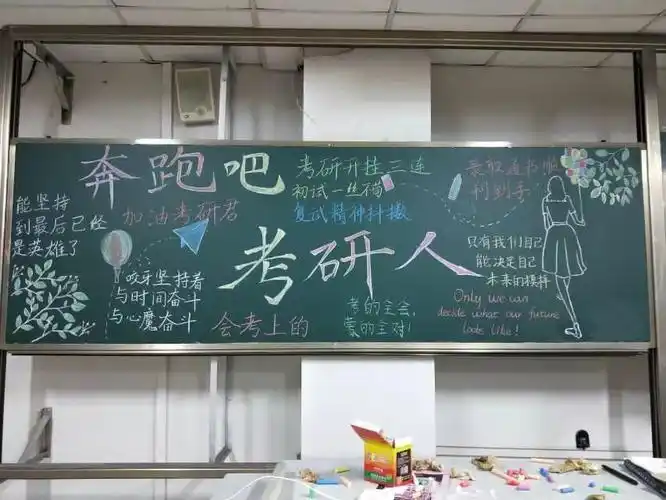 奔跑吧
考研人
能坚持
到最后已经
是英雄了
加油考研君
咬牙坚持着
与时间奋斗
与心魔奋斗
会考上的
考研开挂三连
初试一丝稳
复试精神抖擞
录取通书顺
利到手
考的全会，
蒙的全对!
只有我们自己
能决定自己
未来的模样
Only we can
decide what our future
looks like!